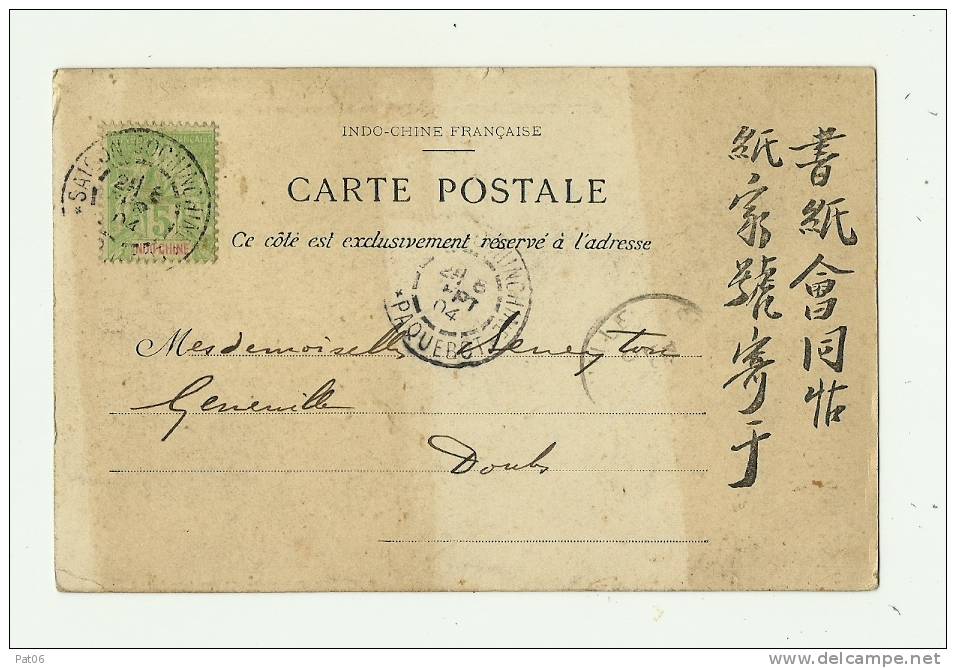 INDO-CHINE FRANÇAISE
CARTE POSTALE
Ce côté est exclusivement réservé à l'adresse
SAIGON COCHINCHINE
04
5
INDO-CHINE
PAQUEBOT
04
Mesdemoiselles
Doubs
書紙會同帖
紙家號寄于
Pat06
www.delcampe.net